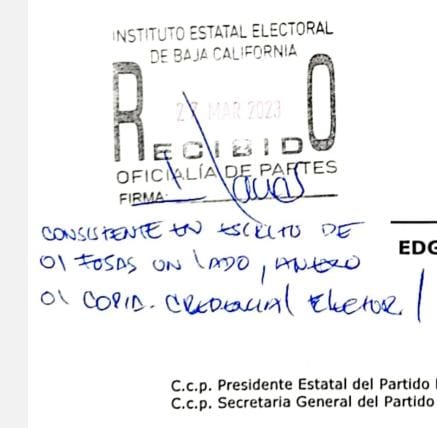 INSTITUTO ESTATAL ELECTORAL
DE BAJA CALIFORNIA
27 MAR 2023
RECIBIDO
OFICIALÍA DE PARTES
FIRMA:
CONSISTENTE EN ESCRITO DE
01 FOJAS UN LADO, ANEXO
01 COPIA. CREDENCIAL ELECTOR
EDG
C.c.p. Presidente Estatal del Partido
C.c.p. Secretaria General del Partido